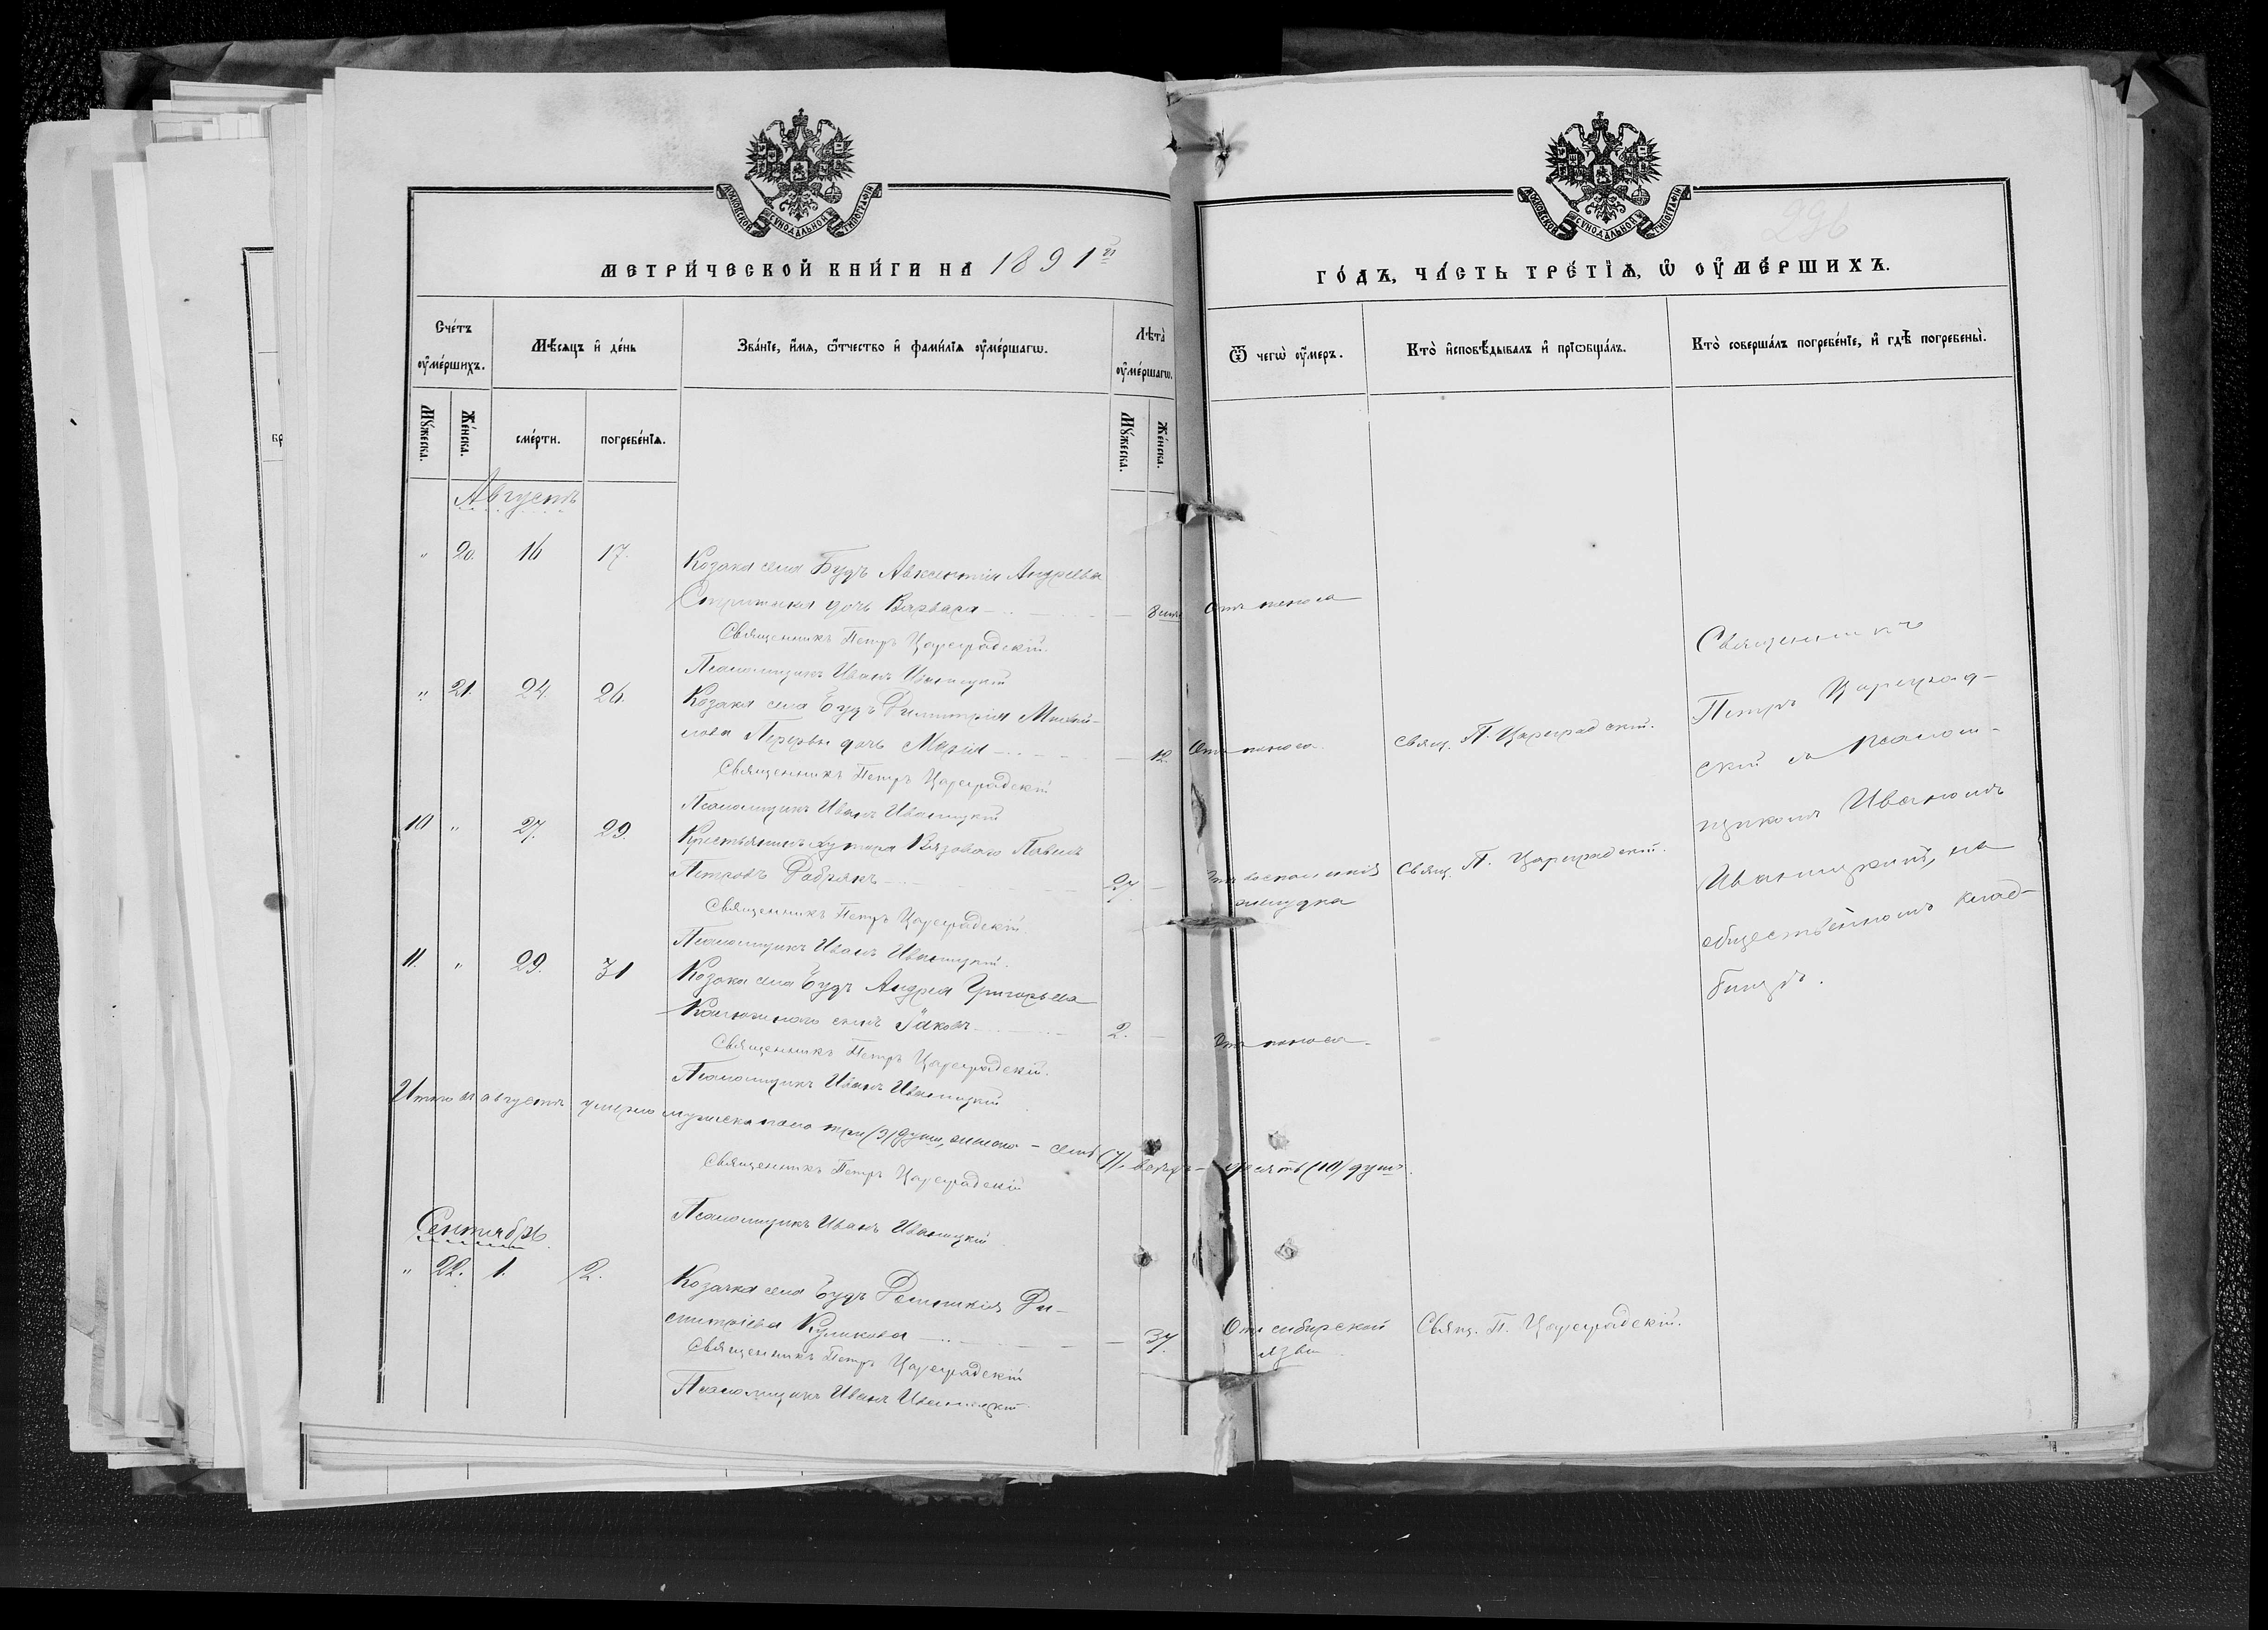 МОСКОВСКОЙ СѴНОДАЛЬНОЙ ТИПОГРАФІИ
МЕТРИ́ЧЕСКОЙ КНИ́ГИ НА 1891й
Счéтъ ᲂу҆мéршихъ.
Мѣ́сяцъ и҆ дéнь
Звáнїе, и҆́мѧ, ѻ҆́тчество и҆ фами́лїѧ ᲂу҆мéршагѡ.
Лѣ́та ᲂу҆мéршагѡ.
Мꙋ́жеска.
Жéнска.
смéрти.
погребéнїѧ.
Мꙋ́жеска.
Жéнска.
Августъ
" 20. 16 17. Козака села Будъ Авксентія Андреева
дочь Варвара 8
Священникъ Петръ Цареградскій.
Псаломщикъ Иванъ Иваницкій
" 21. 24 26. Козака села Будъ Димитрія Михай-
лова дочь Марія 12.
Священникъ Петръ Цареградскій
Псаломщикъ Иванъ Иваницкій
10 " 27. 29. Крестьянинъ хутора Вязоваго Павелъ
Петровъ 27.
Священникъ Петръ Цареградскій
Псаломщикъ Иванъ Иваницкій.
11. " 29. 31 Козака села Будъ Андрея Григорьева
сынъ Іаковъ 2.
Священникъ Петръ Цареградскій.
Псаломщикъ Иванъ Иваницкій
Итого въ августѣ умерло мужеска пола три (3) души, женска - семь (7), всѣхъ - десять (10) душъ.
Священникъ Петръ Цареградскій
Псаломщикъ Иванъ Иваницкій
Сентябрь.
" 22. 1. 2. Козачка села Будъ Ди-
митріева Куликова 37.
Священникъ Петръ Цареградскій
Псаломщикъ Иванъ Иваницкій.
МОСКОВСКОЙ СѴНОДАЛЬНОЙ ТИПОГРАФІИ
296
ГО́ДЪ, ЧА́СТЬ ТРЕ́ТЇѦ, Ѡ҆ ОУ҆МЕ́РШИХЪ.
Ѿ чегѡ̀ ᲂу҆́меръ.
Ктò и҆сповѣ́дывалъ и҆ прїѡбщáлъ.
Ктò совершáлъ погребéнїе, и҆ гдѣ̀ погребены̀.
Отъ поноса
Отъ поноса. Свящ. П. Цареградскій.
Отъ воспаленія Свящ. П. Цареградскій.
желудка
Отъ поноса.
Отъ сибирской Свящ. П. Цареградскій.
язвы
Священникъ
Петръ Цареград-
скій съ псалом-
щикомъ Иваномъ
Иваницкимъ, на
общественномъ клад-
бищѣ.